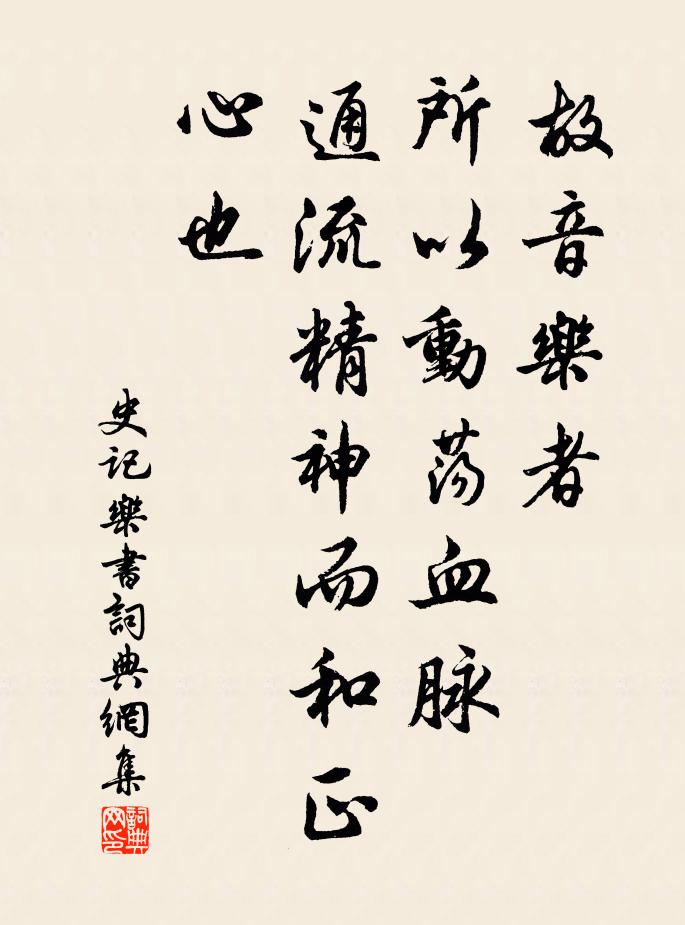 故音樂者
所以動蕩血脉
通流精神而和正
心也
史記樂書詞典網集
詞典网印